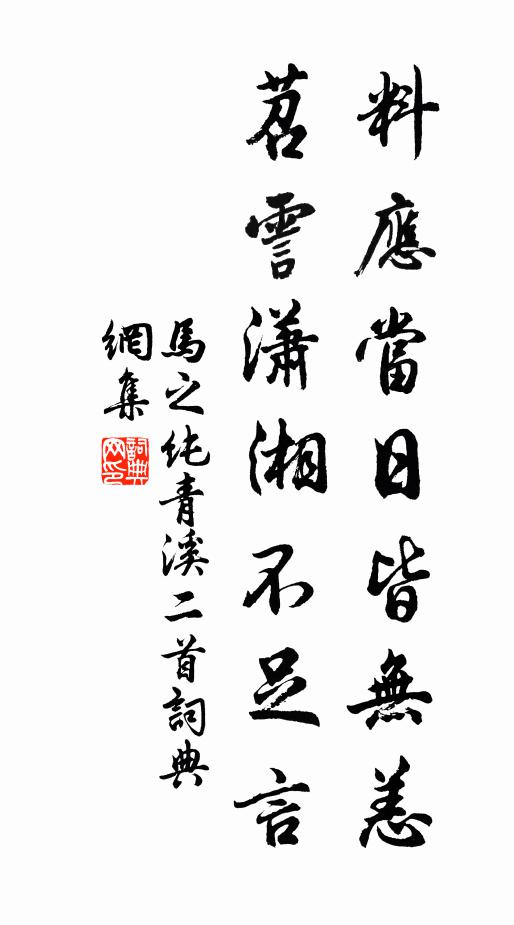 料應當日皆無恙
苕霅瀟湘不足言
馬之純青溪二首詞典
網集
詞典網印